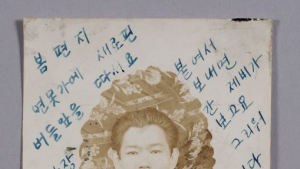 봄 편 지
연못가에 새로핀
버들잎을 따서요
장
붙여서
보내면
간 제비가
보고요
그리워
다